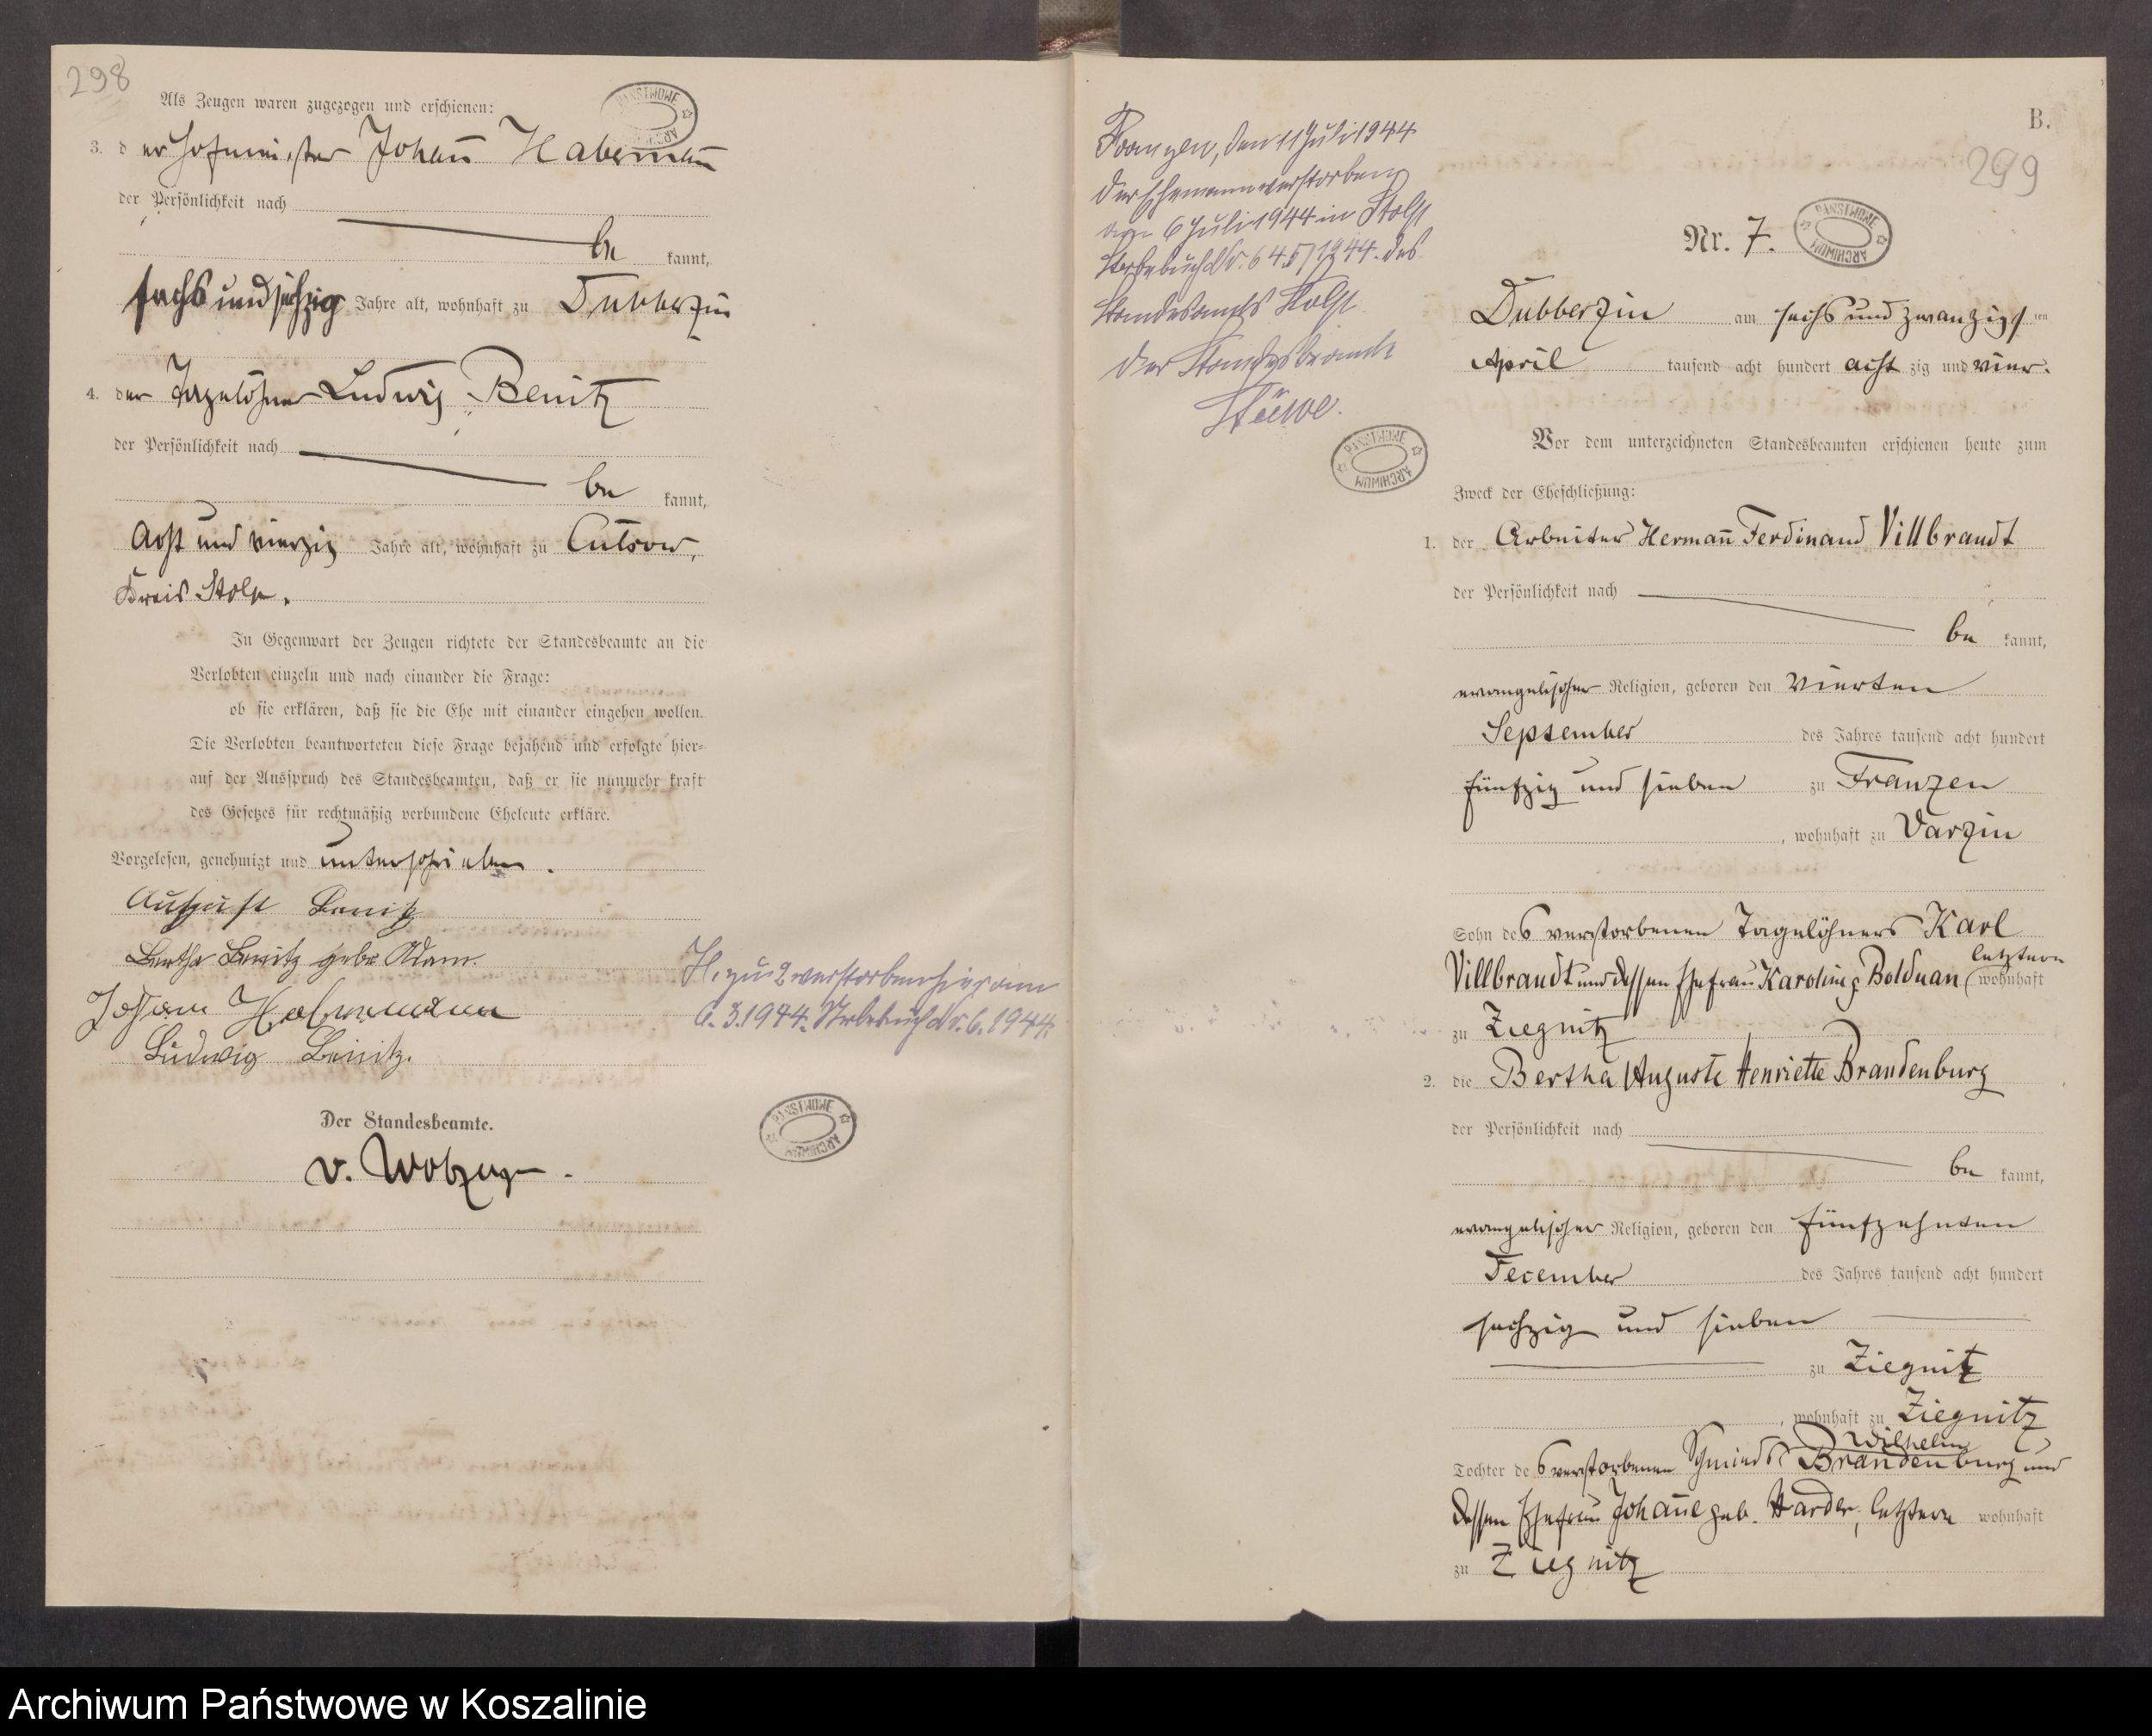 298
Als Zeugen waren zugezogen und erschienen:
PANSTWOWE ARCHIWUM
3. der Hofmeister Johañ Habermañ
der Persönlichkeit nach
be kannt,
sechs und sechzig Jahre alt, wohnhaft zu Dubberzin
4. der Tagelöhner Ludwig Benitz
der Persönlichkeit nach
be kannt,
Acht und vierzig Jahre alt, wohnhaft zu
Kreis Stolp.
In Gegenwart der Zeugen richtete der Standesbeamte an die
Verlobten einzeln und nach einander die Frage:
ob sie erklären, daß sie die Ehe mit einander eingehen wollen.
Die Verlobten beantworteten diese Frage bejahend und erfolgte hier=
auf der Ausspruch des Standesbeamten, daß er sie nunmehr kraft
des Gesetzes für rechtmäßig verbundene Eheleute erkläre.
Vorgelesen, genehmigt und unterschrieben.
August Benitz
Bertha Benitz geb. Adam
Johann Habermann
Ludwig Benitz.
H. zu 2 verstorben hier am
6.3.1944. Sterbebuch Nr. 6.1944
Der Standesbeamte.
PANSTWOWE ARCHIWUM
v.
Franzen, den 11 Juli 1944
Der Ehemann verstorben
am 6 Juli 1944 in Stolp
Sterbebuch Nr. 645/1944. des
Standesamts Stolp
Der Standesbeamte
Stüwe.
PANSTWOWE ARCHIWUM
B.
299
Nr. 7.
PANSTWOWE ARCHIWUM
Dubberzin am sechs und zwanzigsten
April tausend acht hundert achtzig und vier.
Vor dem unterzeichneten Standesbeamten erschienen heute zum
Zweck der Eheschließung:
1. der Arbeiter Hermañ Ferdinand Villbrandt
der Persönlichkeit nach
be kannt,
evangelischer Religion, geboren den vierten
September des Jahres tausend acht hundert
fünfzig und sieben zu Franzen
, wohnhaft zu Varzin
Sohn des verstorbenen Tagelöhners Karl
Villbrandt und dessen Ehefrau Karoline g. Bolduan (letztere wohnhaft
zu Ziegnitz
2. die Bertha Auguste Henriette Brandenburg
der Persönlichkeit nach
be kannt,
evangelischer Religion, geboren den fünfzehnten
December des Jahres tausend acht hundert
sechzig und sieben
zu Ziegnitz
, wohnhaft zu Ziegnitz
Tochter des verstorbenen Schmieds Wilhelm Brandenburg und
dessen Ehefrau Johañe geb. Harder, letztere wohnhaft
zu Ziegnitz
Archiwum Państwowe w Koszalinie